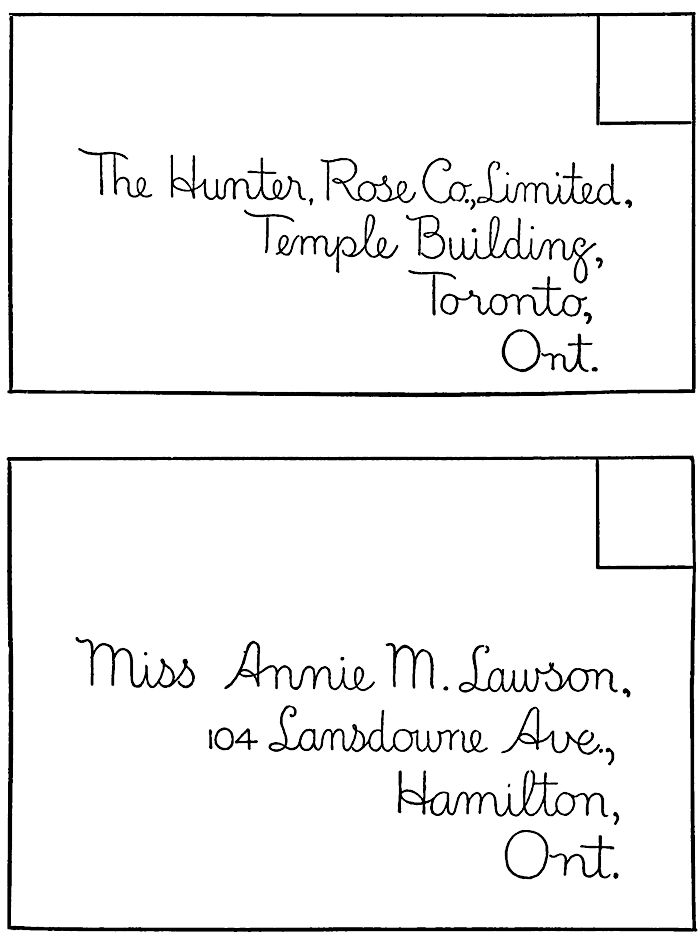 The Hunter, Rose Co., Limited,
Temple Building,
Toronto,
Ont.
Miss Annie M. Lawson,
104 Lansdowne Ave.,
Hamilton,
Ont.